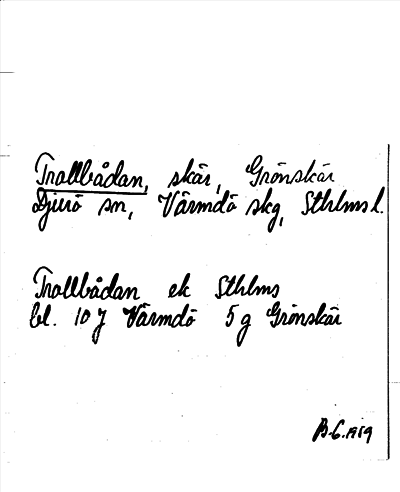 Trollbådan, skär, Grönskär
Djurö sn, Värmdö skg, Sthlms l.
Trollbådan ek Sthlms
bl. 10 J Värmdö 5 g Grönskär
B-G. 1959